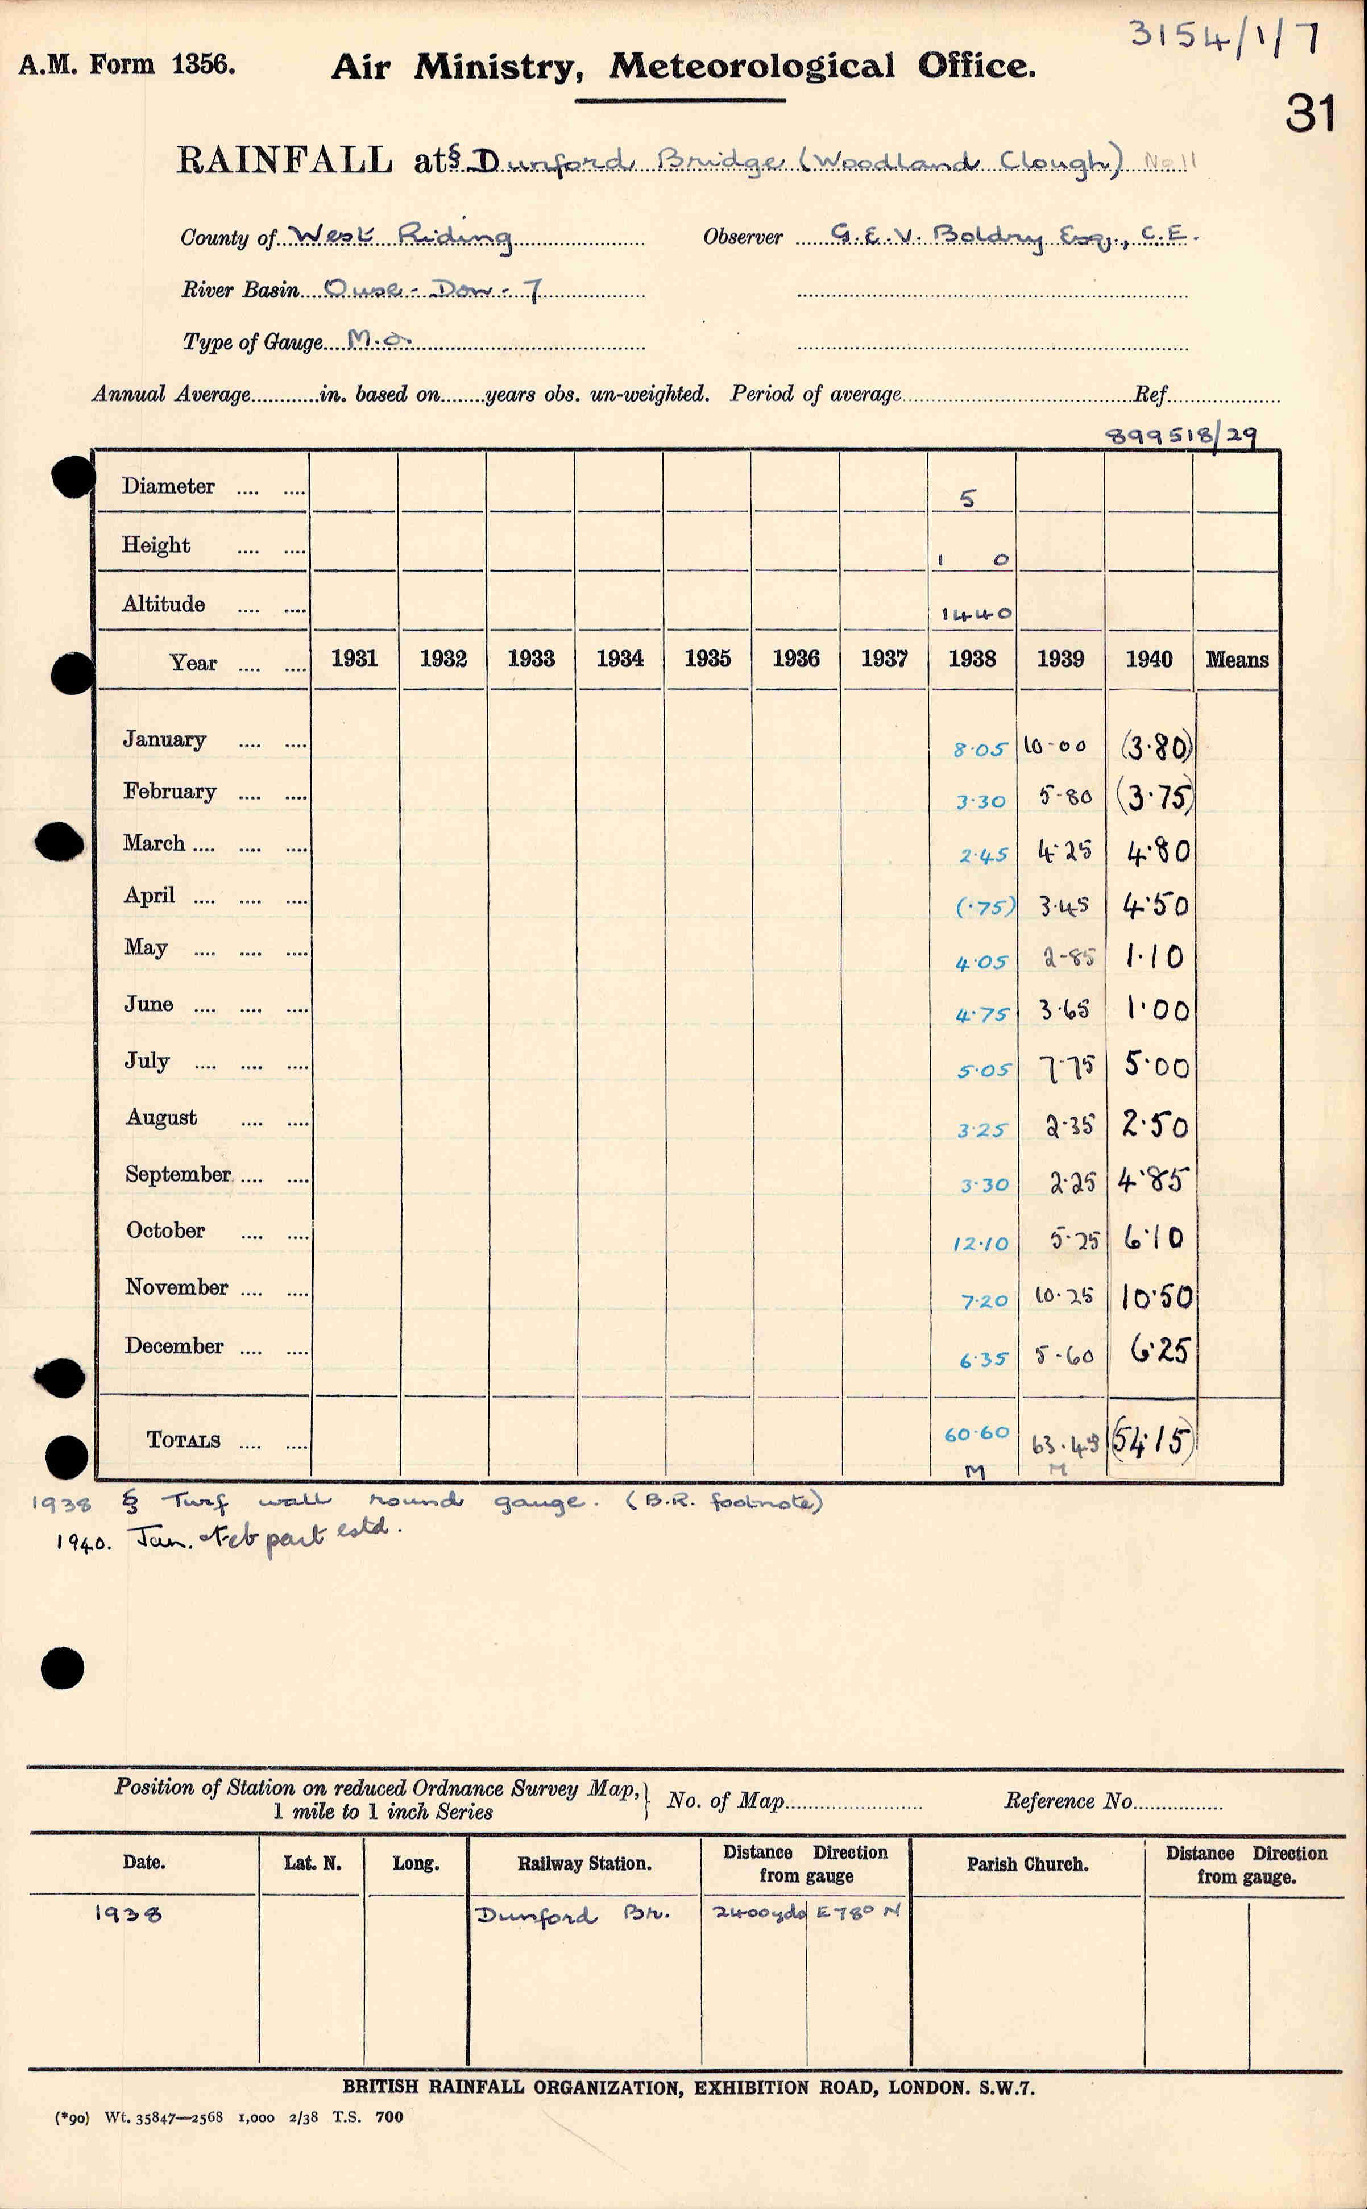 3154/1/7
A.M. Form 1356. Air Ministry, Meteorological Office.
31
RAINFALL at§ Dunford Bridge (Woodland Clough) No 11
County of West Riding Observer G.E.V. Boldry Esq., C.E.
River Basin Ouse - Don - 7
Type of Gauge M.O.
Annual Average............in. based on........years obs. un-weighted. Period of average....................Ref....................
899518/29
Diameter .... .... 5
Height .... .... 1 0
Altitude .... .... 1440
Year .... .... 1931 1932 1933 1934 1935 1936 1937 1938 1939 1940 Means
January .... .... 8.05 10.00 (3.80)
February .... .... 3.30 5.80 (3.75)
March .... .... .... 2.45 4.25 4.80
April .... .... .... (.75) 3.45 4.50
May .... .... .... 4.05 2.85 1.10
June .... .... .... 4.75 3.65 1.00
July .... .... .... 5.05 7.75 5.00
August .... .... 3.25 2.35 2.50
September .... .... 3.30 2.25 4.85
October .... .... 12.10 5.25 6.10
November .... .... 7.20 10.25 10.50
December .... .... 6.35 5.60 6.25
TOTALS .... .... 60.60 63.45 (54.15)
M M
1938 § Turf wall round gauge. (B.R. footnote)
1940. Jan. & Feb part estd.
Position of Station on reduced Ordnance Survey Map,
1 mile to 1 inch Series } No. of Map........................ Reference No................
Date. Lat. N. Long. Railway Station. Distance Direction from gauge Parish Church. Distance Direction from gauge.
1938 Dunford Br. 2400yds E78° N
BRITISH RAINFALL ORGANIZATION, EXHIBITION ROAD, LONDON. S.W.7.
(*90) Wt. 35847—2568 1,000 2/38 T.S. 700